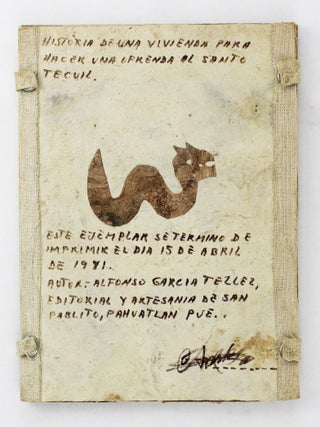 HISTORIA DE UNA VIVIENDA PARA
HACER UNA OFRENDA AL SANTO
TECUIL.
ESTE EJEMPLAR SE TERMINO DE
IMPRIMIR EL DIA 15 DE ABRIL
DE 1981.
AUTOR.- ALFONSO GARCIA TELLEZ,
EDITORIAL Y ARTESANIA DE SAN
PABLITO, PAHUATLAN PUE..